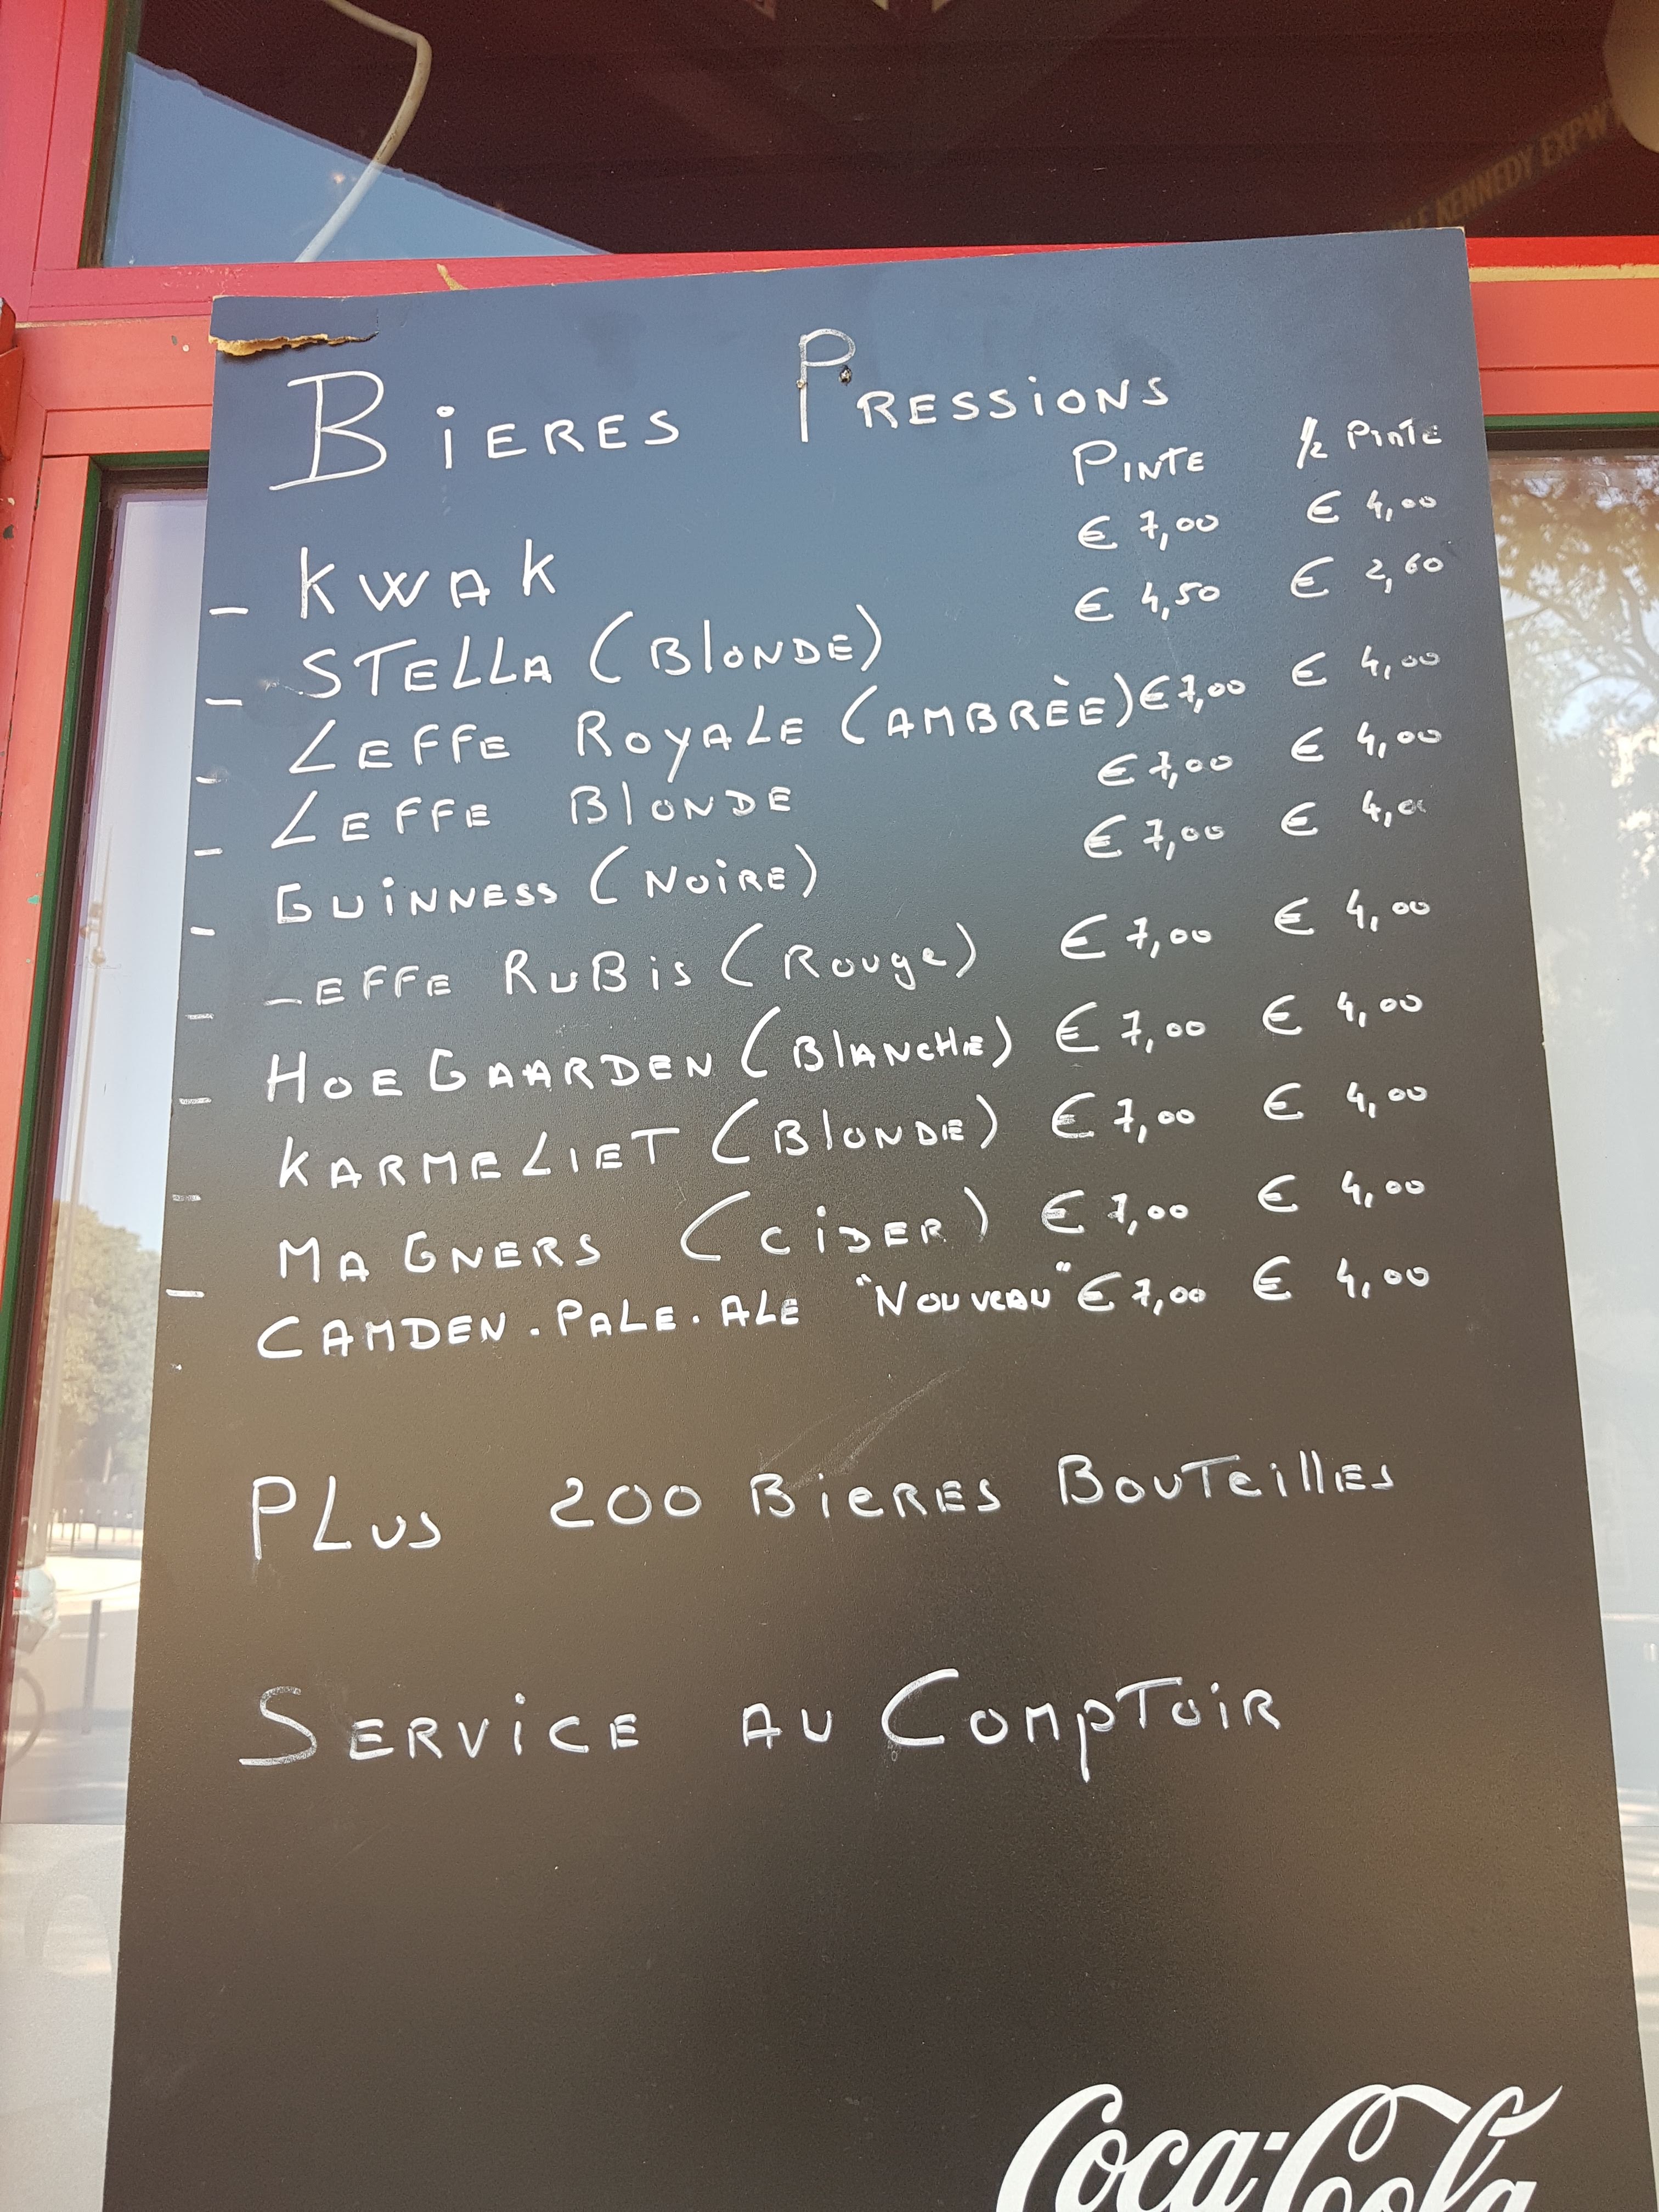 KENNEDY EXPWY
BIERES PRESSIONS
PINTE ½ PINTE
- KWAK € 7,00 € 4,00
- STELLA (BLONDE) € 4,50 € 2,60
- LEFFE ROYALE (AMBRÈE) € 7,00 € 4,00
- LEFFE BLONDE € 7,00 € 4,00
- GUINNESS (NOIRE) € 7,00 € 4,00
- LEFFE RUBIS (ROUGE) € 7,00 € 4,00
- HOEGAARDEN (BLANCHE) € 7,00 € 4,00
- KARMELIET (BLONDE) € 7,00 € 4,00
- MAGNERS (CIDER) € 7,00 € 4,00
CAMDEN.PALE.ALE "NOUVEAU" € 7,00 € 4,00
PLUS 200 BIERES BOUTEILLES
SERVICE AU COMPTOIR
Coca-Cola